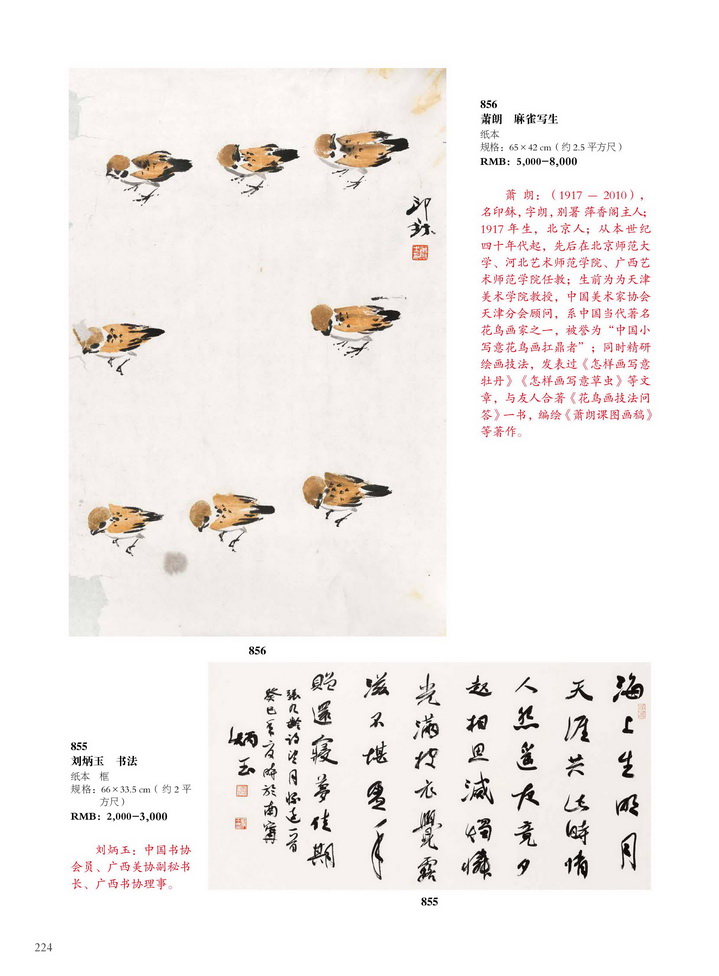 856
萧朗　麻雀写生
纸本
规格：65×42 cm（约2.5平方尺）
RMB：5,000–8,000
萧 朗：（1917 — 2010），
名印鉌，字朗，别署 萍香阁主人；
1917 年生，北京人；从本世纪
四十年代起，先后在北京师范大
学、河北艺术师范学院、广西艺
术师范学院任教；生前为为天津
美术学院教授，中国美术家协会
天津分会顾问，系中国当代著名
花鸟画家之一，被誉为“中国小
写意花鸟画扛鼎者”；同时精研
绘画技法，发表过《怎样画写意
牡丹》《怎样画写意草虫》等文
章，与友人合著《花鸟画技法问
答》一书，编绘《萧朗课图画稿》
等著作。
印鉌
856
855
刘炳玉　书法
纸本　框
规格：66×33.5 cm（ 约 2 平
方尺）
RMB：2,000–3,000
刘炳玉：中国书协
会员、广西美协副秘书
长、广西书协理事。
海上生明月
天涯共此時情
人怨遥夜竟夕
起相思滅燭憐
光滿披衣覺露
滋不堪盈手
贈還寢夢佳期
張九齡詩望月懷遠一首
癸巳年夏時於南寧
炳玉
855
224